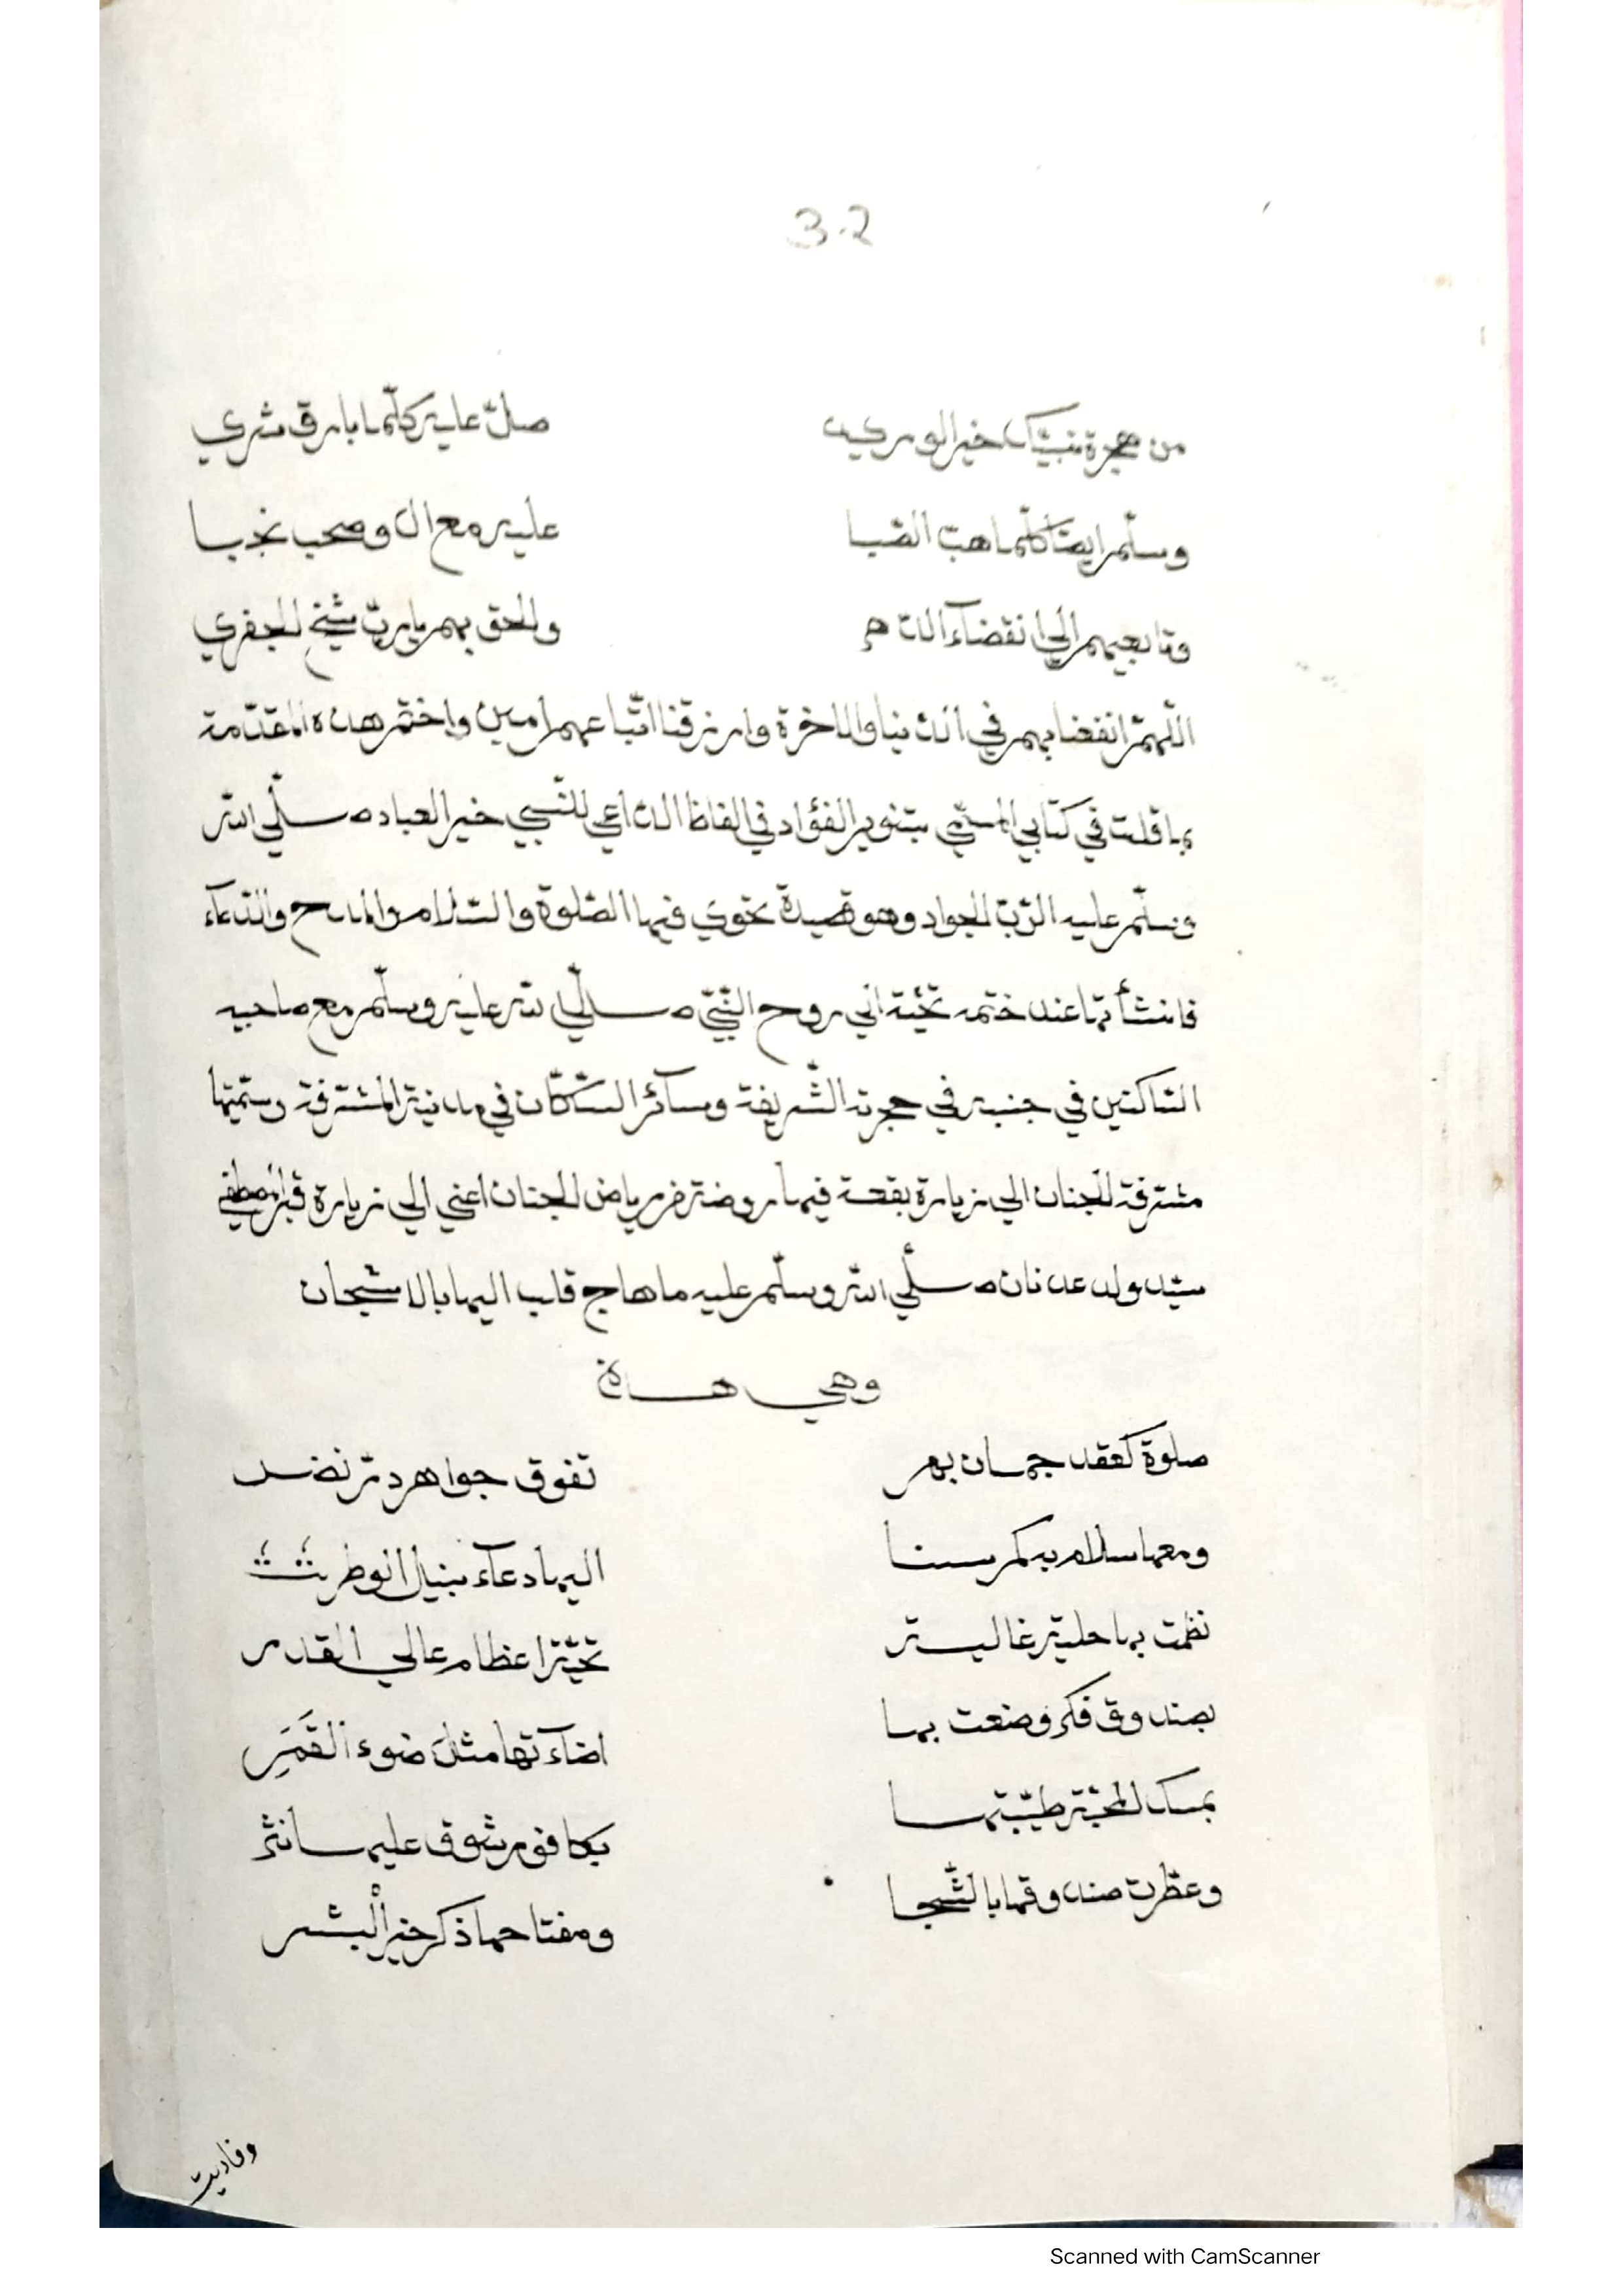 3.2
من هجرة نبيّك خير الورى صلّ عليه كلّما بارق شري
وسلّم ايضا كلّما هبّ الصّبا عليه مع ال وصحب نجبا
وتابعيهم الي انقضاء الدّهر والحق بهم يا ربّ شيخ الجفري
اللّهمّ انفعنا بهم في الدّنيا والاخرة وارزقنا اتّباعهم امين واختم هذه المقدّمة
بما قلت في كتابي المسمّي بتنوير الفؤاد في الفاظ الدّاعي للنّبي خير العباد صلّي الله
وسلّم عليه الرّبّ الجواد وهو قصيدة تحوي فيها الصّلوة والسّلام والمدح والدّعآء
فانشأتها عند ختمه تحيّة الي روح النّبيّ صلّي الله عليه وسلّم مع صاحبيه
السّاكنين في جنبه في حجرته الشّريفة وسآئر السّكّان في مدينته المشرّفة وسمّيتها
مشرّفة الجنان الي زيارة بقعة فيها روضة من رياض الجنان اعني الي زيارة قبر المصطفي
سيّد ولد عدنان صلّي الله وسلّم عليه ما هاج قلب اليها بالاشجان
وهي هذه
صلوة كعقد جمان بهر تفوق جواهر درّ نضد
ومعها سلام به كم سنا اليها دعآء بنيل الوطر
نظمت بها حلية غالية تحيّة اعظام عالي القدر
بصندوق فكر وضعت بها اضآءتها مثل ضوء القَمَرِ
بمسك المحبّة طيّبتها بكافور شوق عليها نثر
وعطّرت صندوقها بالشّجا ومفتاحها ذكر خير الْبشر
وفاديت
Scanned with CamScanner